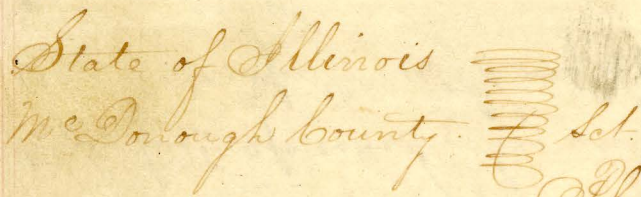 State of Illinois
McDonough County Sct.